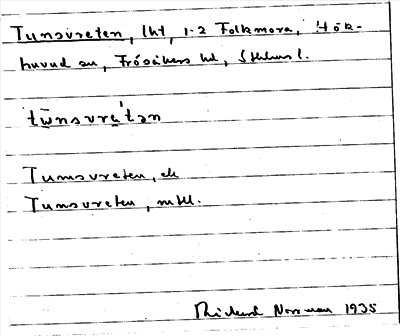 Tunsvreten, lht, 1-2 Folkmora, Hök-
huvud sn, Frösåkers hd, Sthlms l.
tu̱nsvre̱ʹtən
Tumsvreten, ek
Tumsvreten, mtbl.
Rickard Norrman 1935